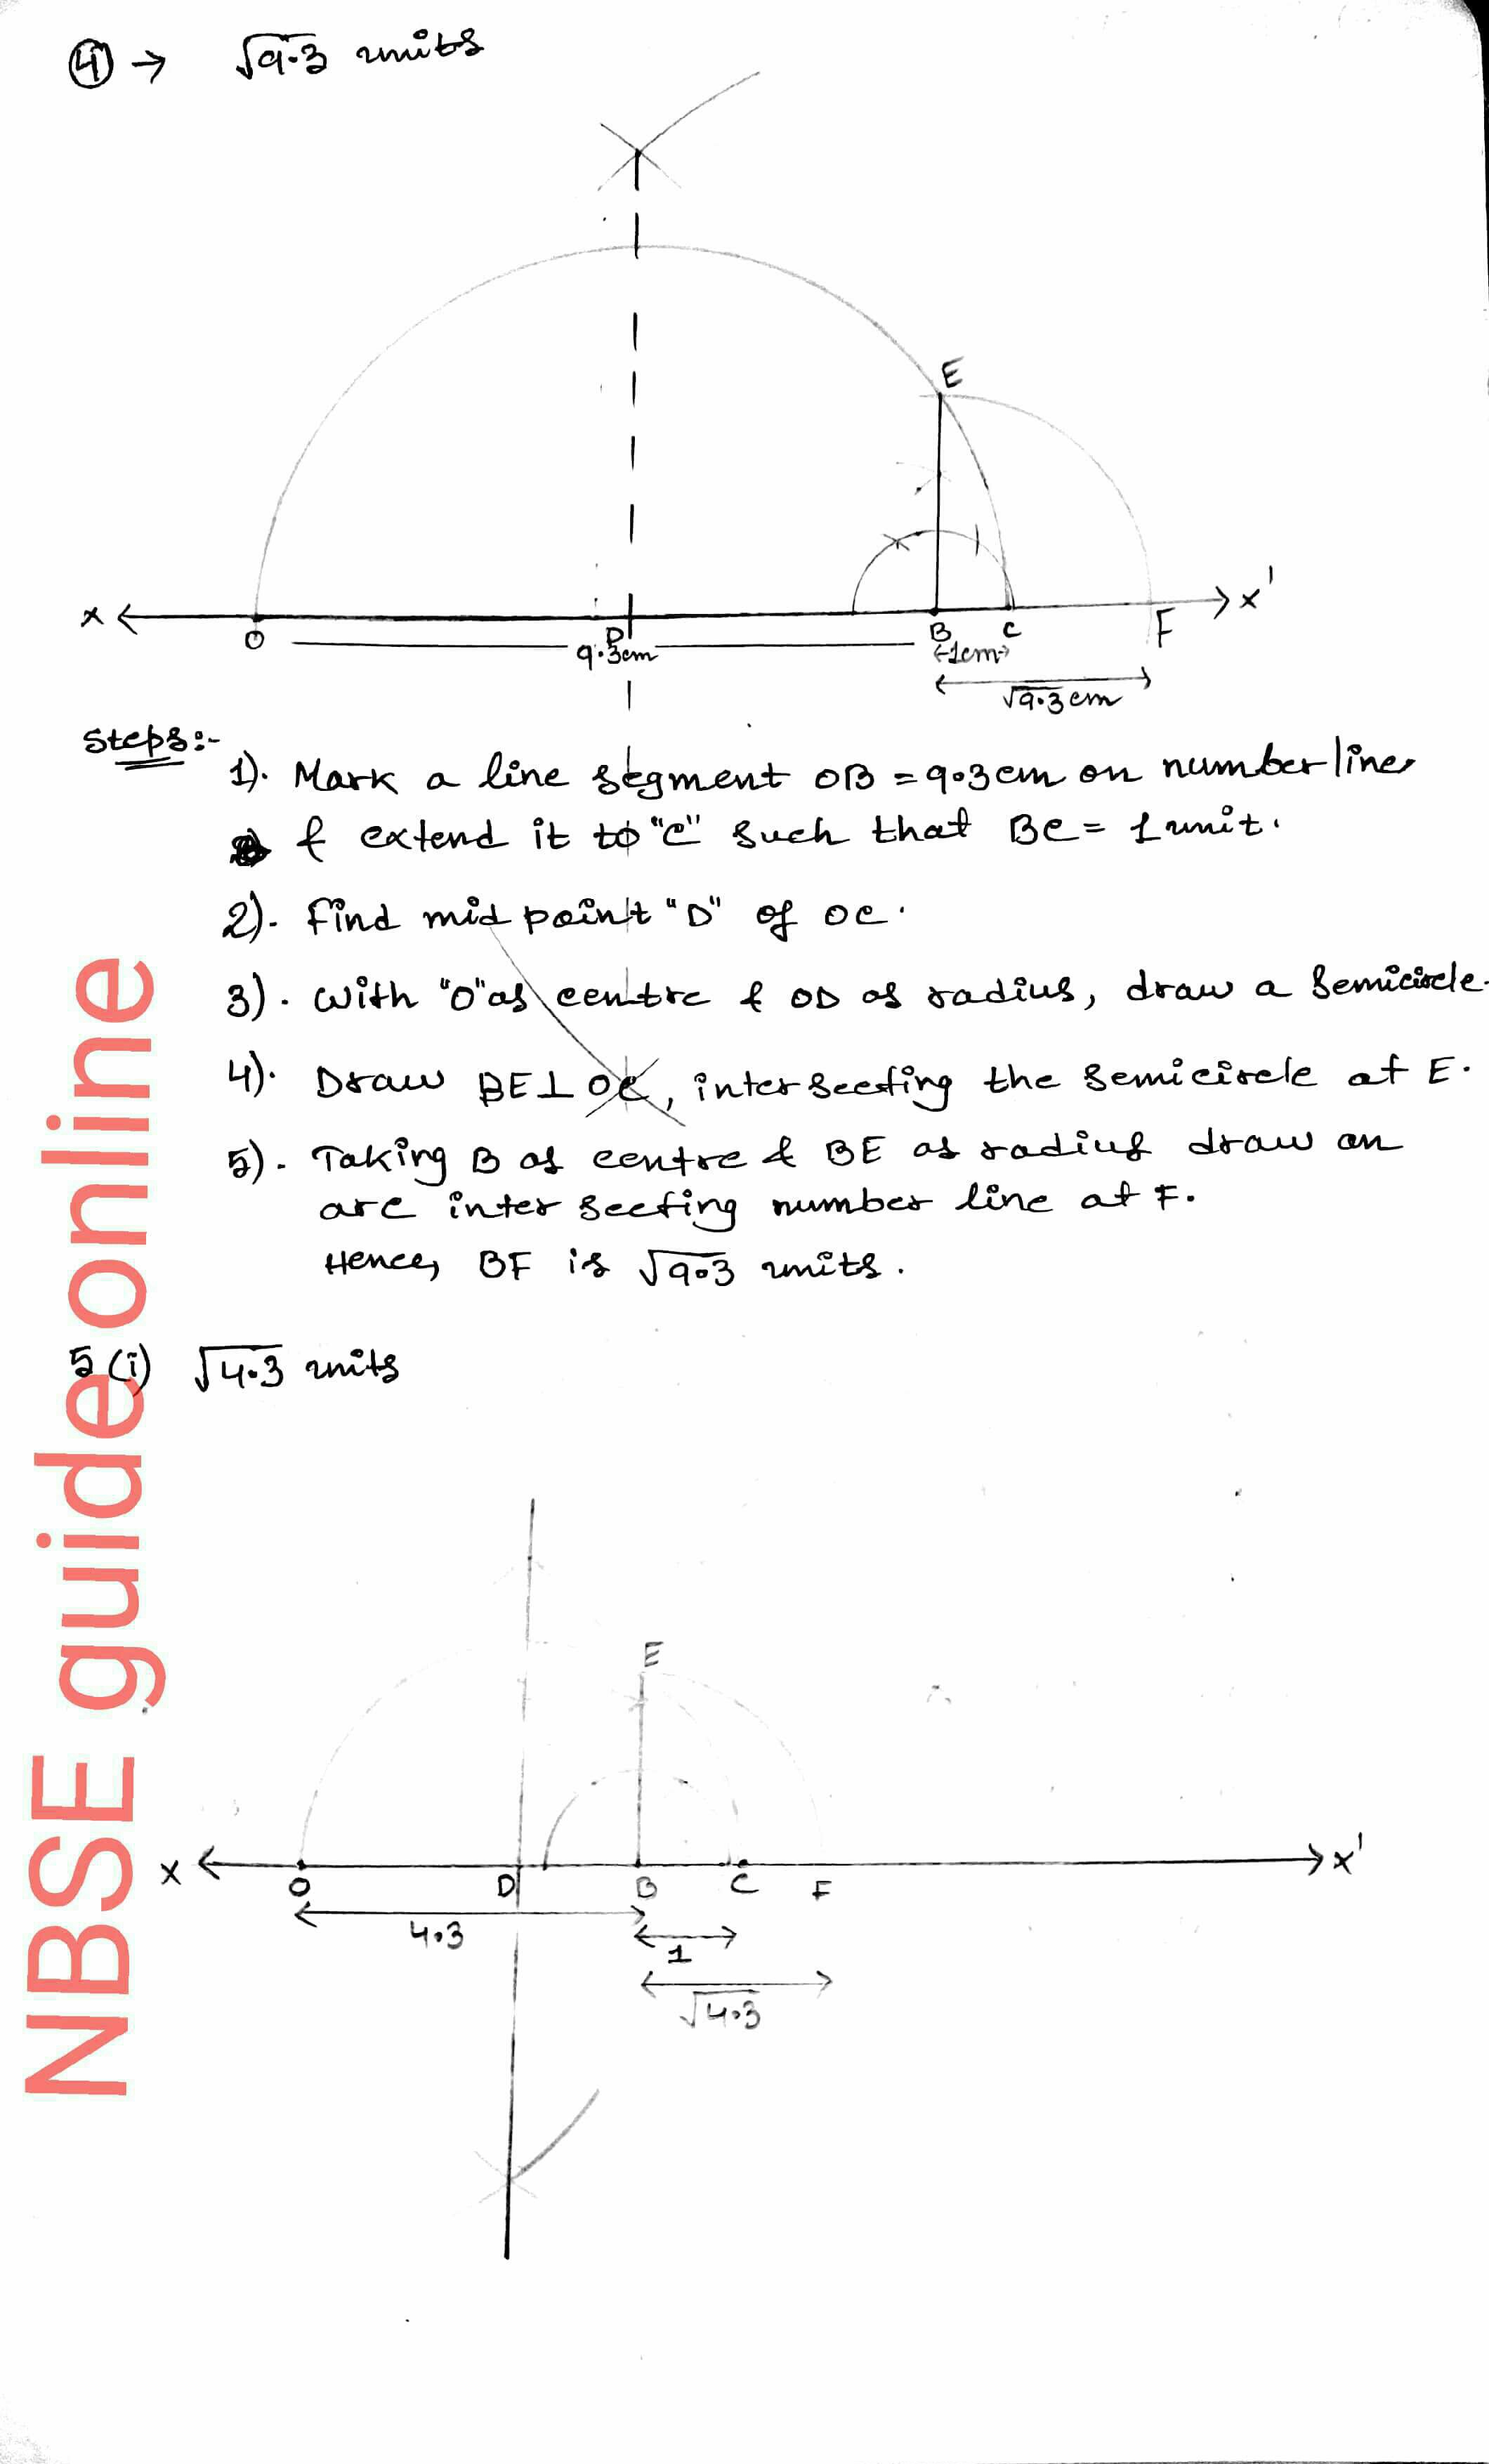 ④ → √9.3 units
E
X O D B C F X'
9.3cm
1cm
√9.3 cm
Steps:-
1). Mark a line segment OB = 9.3cm on number line
& extend it to "C" such that BC = 1 unit.
2). Find mid point "D" of OC.
3). With "O" as centre & OD as radius, draw a semicircle.
4). Draw BE ⊥ OC, intersecting the semicircle at E.
5). Taking B as centre & BE as radius draw an
arc intersecting number line at F.
Hence, BF is √9.3 units.
5 (i) √4.3 units
E
X O D B C F X'
4.3
1
√4.3
NBSE guide online